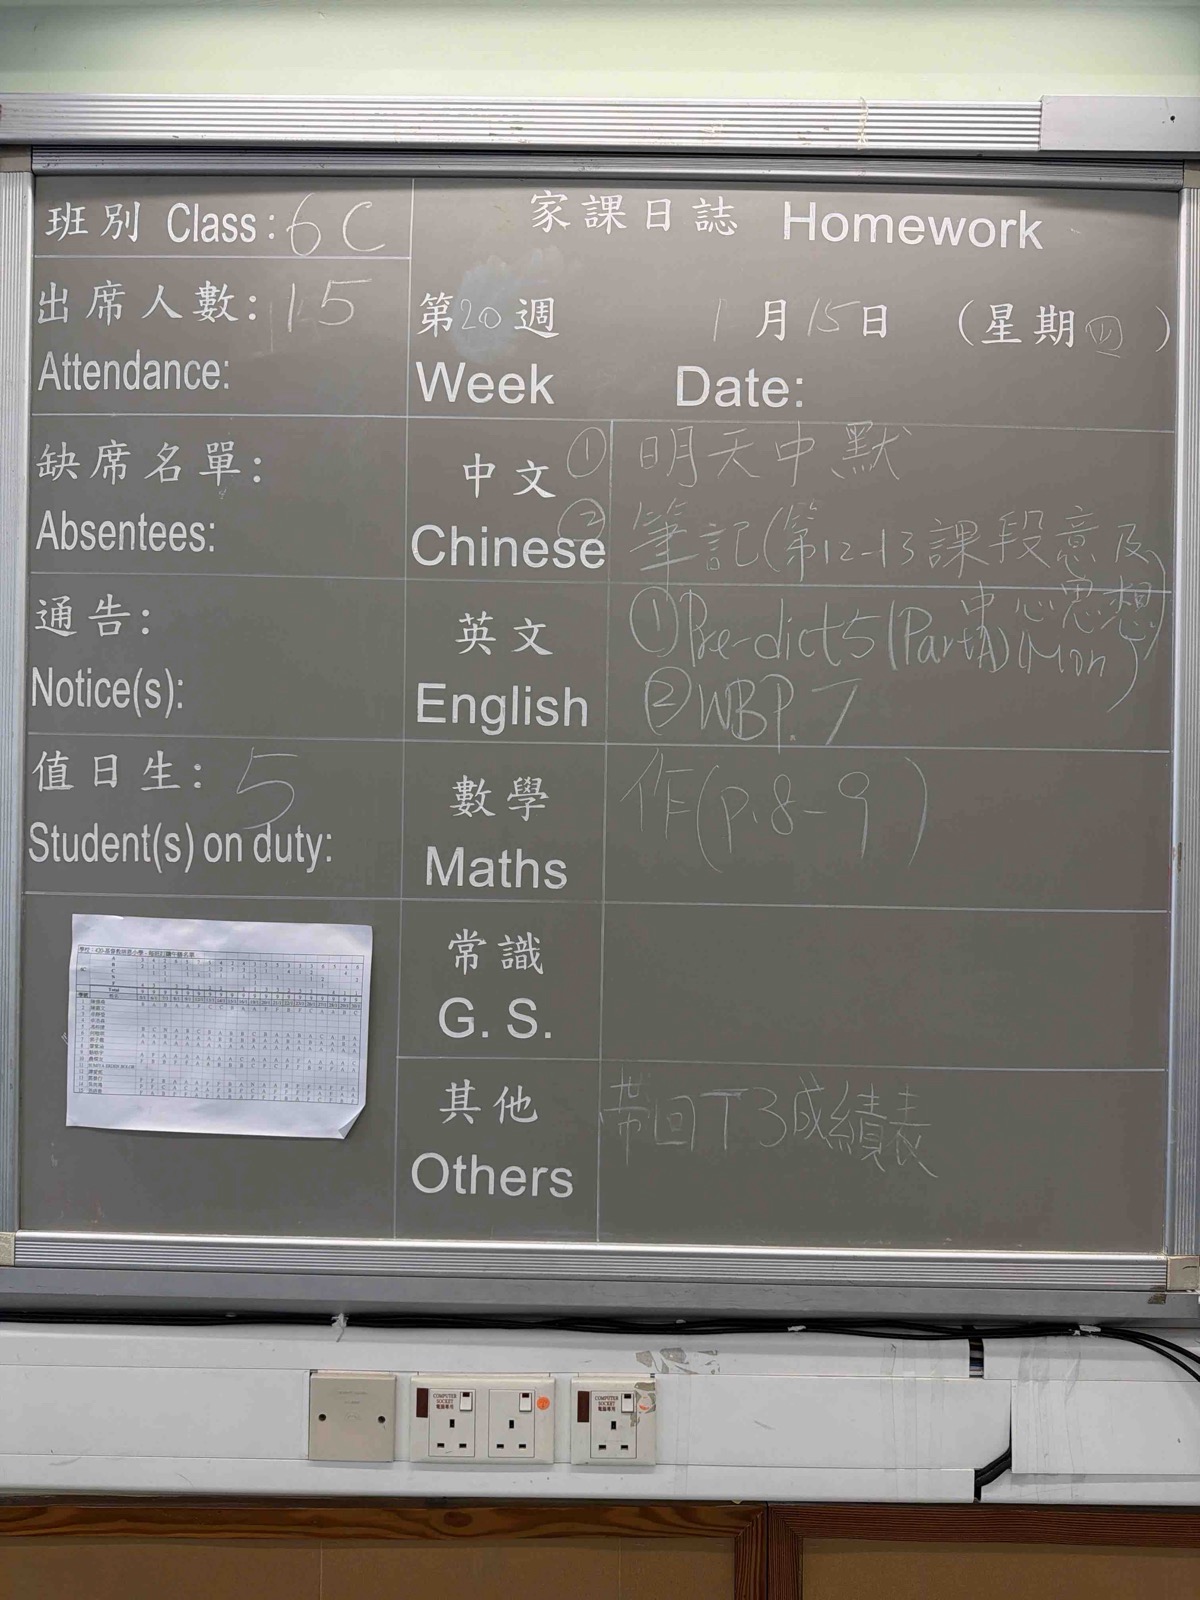 班別 Class: 6C
出席人數: 15
Attendance:
缺席名單:
Absentees:
通告:
Notice(s):
值日生: 5
Student(s) on duty:
家課日誌 Homework
第20週 1月15日 (星期四)
Week Date:
中文 ① 明天中默
Chinese ② 筆記(第12-13課段意及
中心思想)
英文 ①Pre-dict5(PartA)(Mon)
English ②WBP.7
數學 作(p.8-9)
Maths
常識
G. S.
其他 帶回T3成績表
Others
COMPUTER
SOCKET
電腦專用
COMPUTER
SOCKET
電腦專用